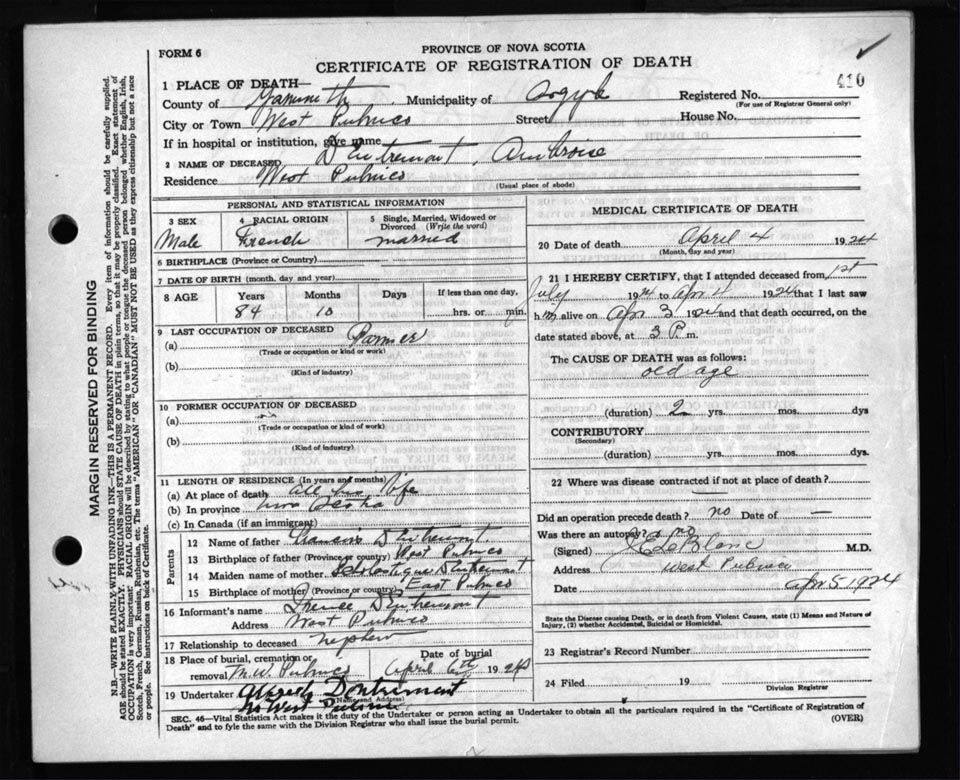 FORM 6
PROVINCE OF NOVA SCOTIA
CERTIFICATE OF REGISTRATION OF DEATH
410
1 PLACE OF DEATH—
County of Yarmouth Municipality of Argyle Registered No.
(For use of Registrar General only)
City or Town West Pubnico Street House No.
If in hospital or institution, give name
2 NAME OF DECEASED D'Entremont, Ambroise
Residence West Pubnico
(Usual place of abode)
PERSONAL AND STATISTICAL INFORMATION
3 SEX Male
4 RACIAL ORIGIN French
5 Single, Married, Widowed or Divorced (Write the word) married
6 BIRTHPLACE (Province or Country)
7 DATE OF BIRTH (month. day and year)
8 AGE Years 84 Months 10 Days If less than one day, hrs. or min.
9 LAST OCCUPATION OF DECEASED
(a) Farmer
(Trade or occupation or kind or work)
(b)
(Kind of industry)
10 FORMER OCCUPATION OF DECEASED
(a)
(Trade or occupation or kind of work)
(b)
(Kind of industry)
11 LENGTH OF RESIDENCE (In years and months)
(a) At place of death all his life
(b) In province
(c) In Canada (if an immigrant)
Parents
12 Name of father D'Entremont
13 Birthplace of father (Province or country) West Pubnico
14 Maiden name of mother Scholastique D'Entremont
15 Birthplace of mother (Province or country) East Pubnico
16 Informant's name D'Entremont
Address West Pubnico
17 Relationship to deceased nephew
18 Place of burial, cremation or removal M.W. Pubnico
Date of burial April 6th 1924
19 Undertaker D'Entremont
(Name and Address)
West Pubnico
MEDICAL CERTIFICATE OF DEATH
20 Date of death April 4 1924
(Month, day and year)
21 I HEREBY CERTIFY, that I attended deceased from 1st
July 192 to Apr 4 1924 that I last saw
him alive on Apr 3 1924 and that death occurred, on the
date stated above, at 3 P. m.
The CAUSE OF DEATH was as follows:
old age
(duration) 2 yrs. mos. dys
CONTRIBUTORY
(Secondary)
(duration) yrs. mos. dys.
22 Where was disease contracted if not at place of death?
Did an operation precede death? no Date of —
Was there an autopsy? no
(Signed) LeBlanc M.D.
Address West Pubnico
Date Apr 5 1924
State the Disease causing Death, or in death from Violent Causes, state (1) Means and Nature of
Injury, (2) whether Accidental, Suicidal or Homicidal.
23 Registrar's Record Number
24 Filed 19
Division Registrar
SEC. 46—Vital Statistics Act makes it the duty of the Undertaker or person acting as Undertaker to obtain all the particulars required in the "Certificate of Registration of
Death" and to fyle the same with the Division Registrar who shall issue the burial permit. (OVER)
MARGIN RESERVED FOR BINDING
N.B.—WRITE PLAINLY WITH UNFADING INK—THIS IS A PERMANENT RECORD. Every item of information should be carefully supplied.
AGE should be stated EXACTLY. PHYSICIANS should STATE CAUSE OF DEATH in plain terms, so that it may be properly classified. Exact statement of
OCCUPATION is very important. RACIAL ORIGIN will be described by stating to what people or tongue the deceased person belonged whether English, Irish,
Scotch, French, German, Russian, Ruthenian, etc. The terms "AMERICAN" or "CANADIAN" MUST NOT BE USED as they express citizenship but not a race
or people. See instructions on back of Certificate.